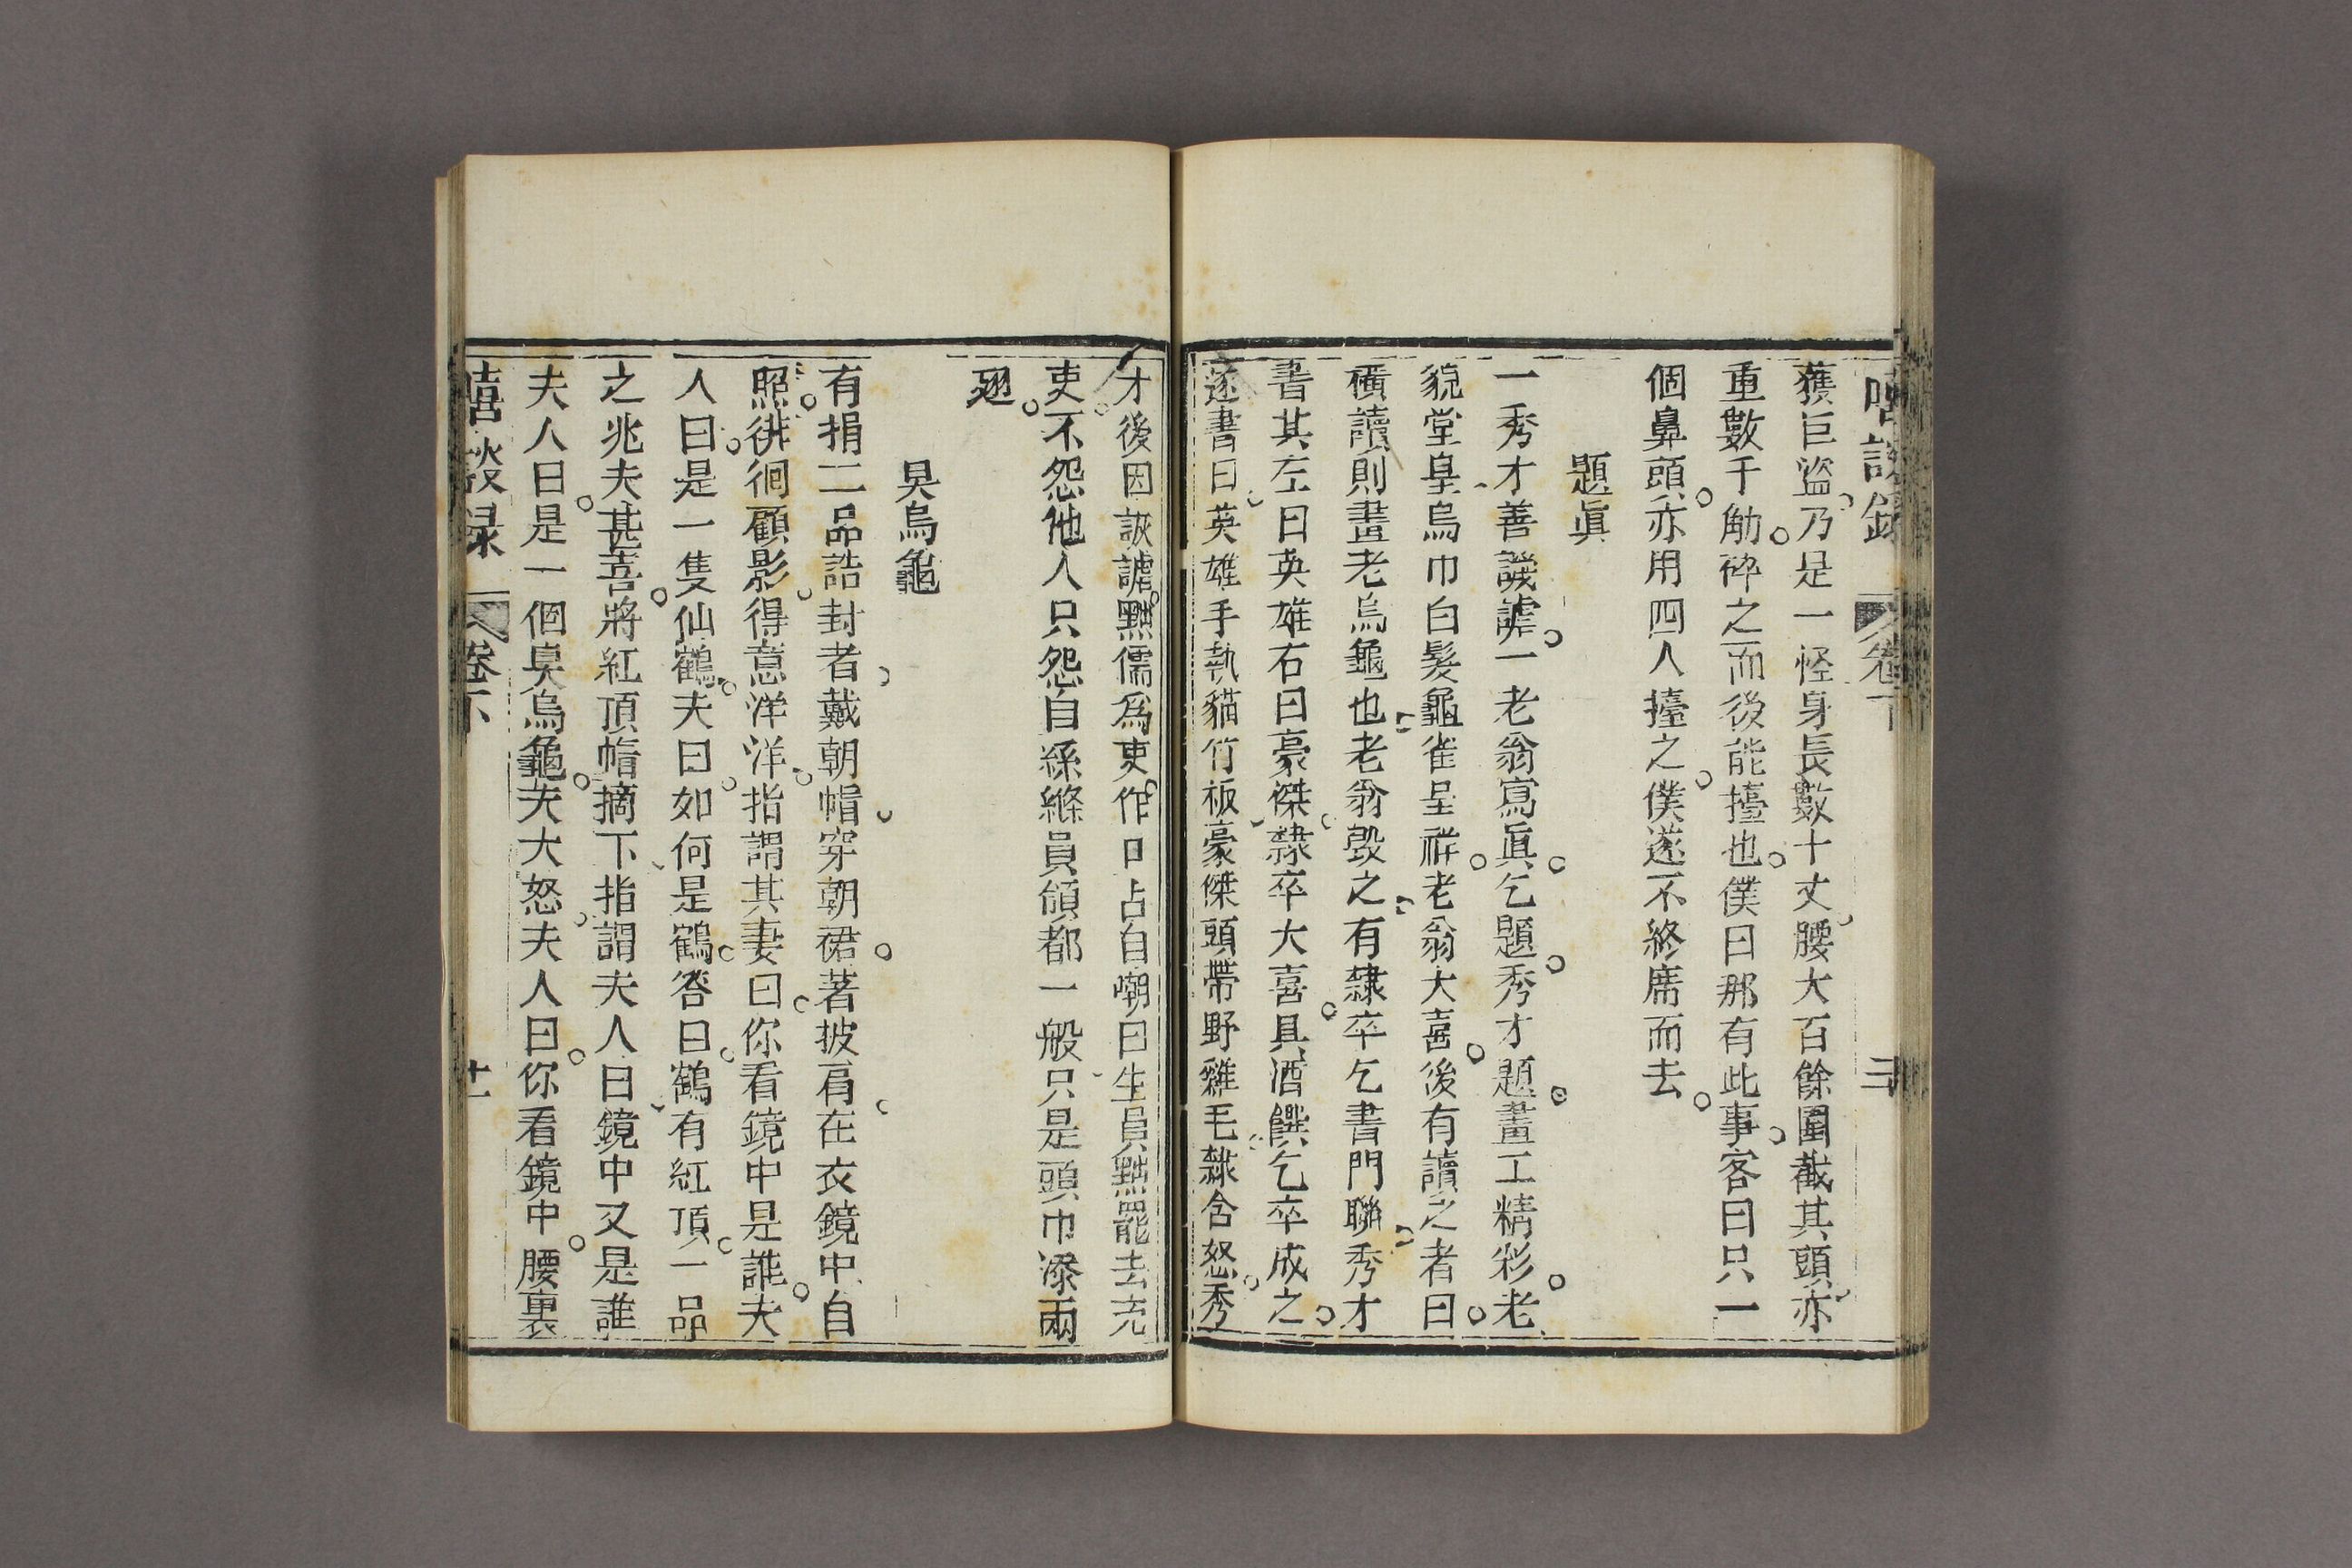 嘻談錄 卷下 三
獲巨盜乃是一怪身長數十丈腰大百餘圍截其頭亦
重數千觔碎之而後能擡也僕曰那有此事客曰只一
個鼻頭亦用四人擡之僕遂不終席而去
題眞
一秀才善譏謔一老翁寫眞乞題秀才題畫工精彩老
貌堂皇烏巾白髮龜雀呈祥老翁大喜後有讀之者曰
橫讀則畫老烏龜也老翁毀之有隸卒乞書門聯秀才
書其左曰英雄右曰豪傑隸卒大喜具酒饌乞卒成之
遂書曰英雄手執貓竹板豪傑頭帶野雞毛隸含怒秀
才後因詼謔黜儒為吏作口占自嘲曰生員黜罷去充
吏不怨他人只怨自絲縧員領都一般只是頭巾添兩
翅
臭烏龜
有捐二品誥封者戴朝帽穿朝裙著披肩在衣鏡中自
照徘徊顧影得意洋洋指謂其妻曰你看鏡中是誰夫
人曰是一隻仙鶴夫曰如何是鶴答曰鶴有紅頂一品
之兆夫甚喜將紅頂帽摘下指謂夫人曰鏡中又是誰
夫人曰是一個臭烏龜夫大怒夫人曰你看鏡中腰裏
嘻談録 卷下